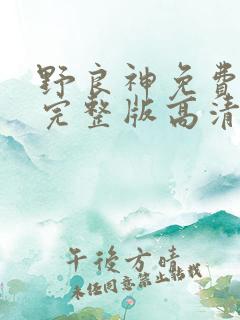 野良神免費
完整版高清
午後方晴
未经同意禁止转载